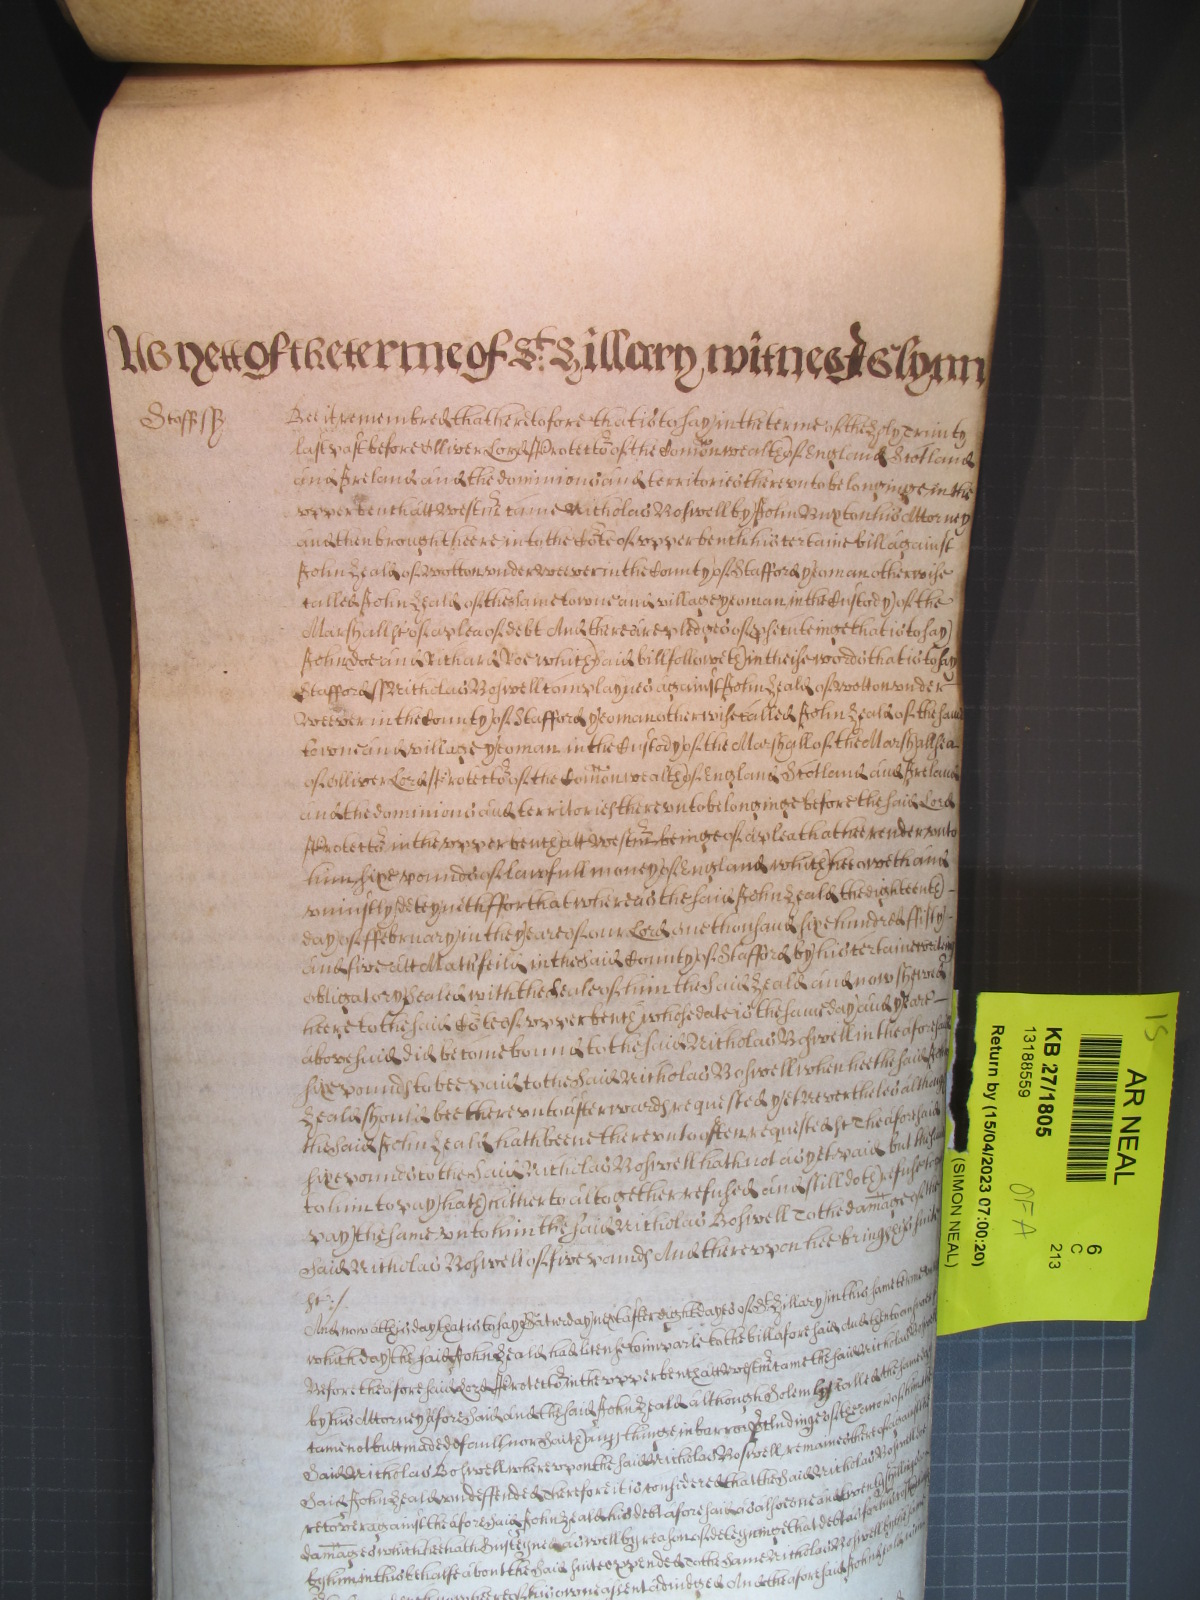 As yett of the terme of St: Hillary witnes Glynn
Staff ss
Bee it remembred that heretofore that is to say in the terme of the Holy Trinity
last past before Olliver Lord Protector of the Comonwealth of England Scotland
and Ireland and the dominions and territories thereunto belonginge in the
upper bench att Westmr came Nicholas Boswell by John Buxton his Attorney
and then brought heere into the Cote of upper bench his certaine bill against
John Heald of Wotton under Weever in the County of Stafford yeoman otherwise
called John Heald of the same towne and village yeoman in the Custody of the
Marshall &c of a plea of debt And there are pledges of psecuteinge that is to say
John Doe and Richard Roe which said bill followeth in theise words that is to say
Stafford ss Nicholas Boswell complaynes against John Heald of Wotton under
Weever in the County of Stafford yeoman otherwise called John Heald of the same
towne and village yeoman in the Custody of the Marshall of the Marshallsea
of Olliver Lord Protector of the Comonwealth of England Scotland and Ireland
and the dominions and territories thereunto belonginge before the said Lord
Protector in the upper bench att Westmr beinge of a plea that hee render unto
him sixe pounds of lawfull money of England which hee oweth and
uniustly deteyneth ffor that whereas the said John Heald the eighteenth
day of ffebruary in the yeare of our Lord one thousand sixe hundred ffifty
and five att Mathfeild in the said County of Stafford by his certaine writing
obligatory sealed with the seale of him the said Heald and now shewed
heere to the said Cote of upper bench whose date is the same day and yeare
abovesaid did become bound to the said Nicholas Boswell in the aforesaid
sixe pounds to bee paid to the said Nicholas Boswell when hee the said John
Heald should bee thereunto afterwards requested yet neverthelesse although
the said John Heald hath beene thereunto often requested &c The aforesaid
sixe pounds to the said Nicholas Boswell hath not as yet paid but the same
to him to pay hath hitherto altogether refused and still doth refuse to
pay the same unto him the said Nicholas Boswell To the damage of the
said Nicholas Boswell of five pounds And thereupon hee brings his suite
&c:/
And now att this day that is to say Saturday next after eight dayes of St Hillary in this same terme untill
which day the said John Heald had license to imparle to the bill aforesaid and then to answere
Before the aforesaid Lord Protector in the upper bench att Westmr came the said Nicholas Boswell
by his Attorney aforesaid and the said John Heald although solemly called the same day
came not but made default nor saith any thinge in barr or pcludinge of the accon of him the
said Nicholas Boswell whereupon the said Nicholas Boswell remaines thereof against the
said John Heald undeffended Therefore it is considered that the said Nicholas Boswell doe
recover against the aforesaid John Heald his debt aforesaid as alsoe one and twenty shillings
damages which hee hath susteyned as well by reason of deteyninge that debt as for his costs
by him in this behalfe about his said suite expended To the same Nicholas Boswell by the
AR NEAL
6
C
213
KB 27/1805
13188559
Return by (15/04/2023 07:00:20)
(SIMON NEAL)
OFA
15